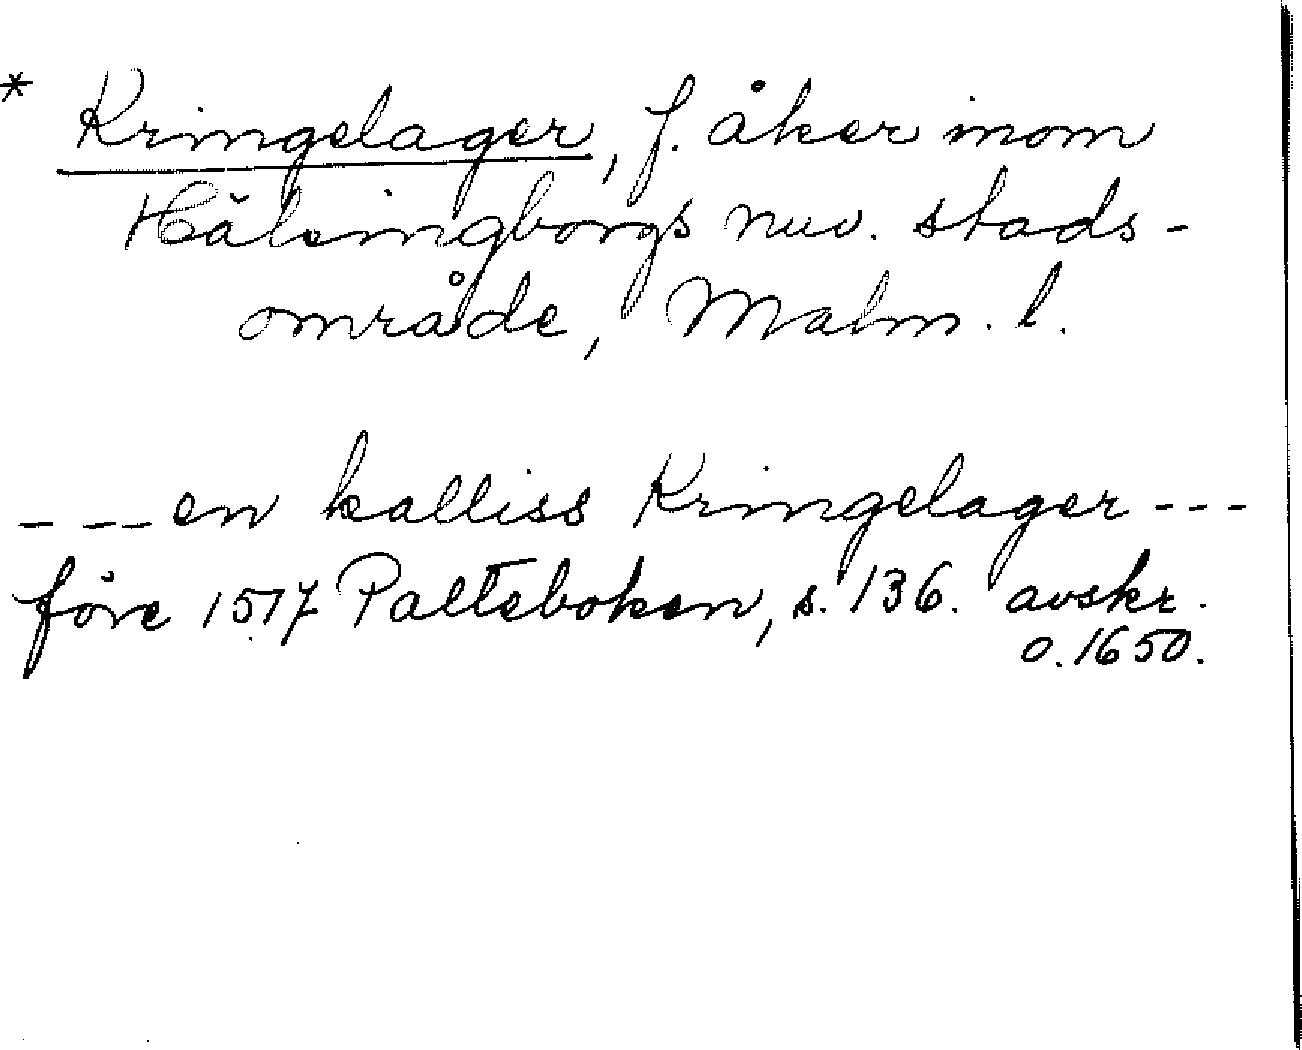 * Kringelager, f. åker inom
Hälsingborgs nuv. stads-
område, Malm. l.
_ _ _ en kalliss Kringelager - - -
före 1517 Palteboken, s. 136. avskr.
o. 1650.